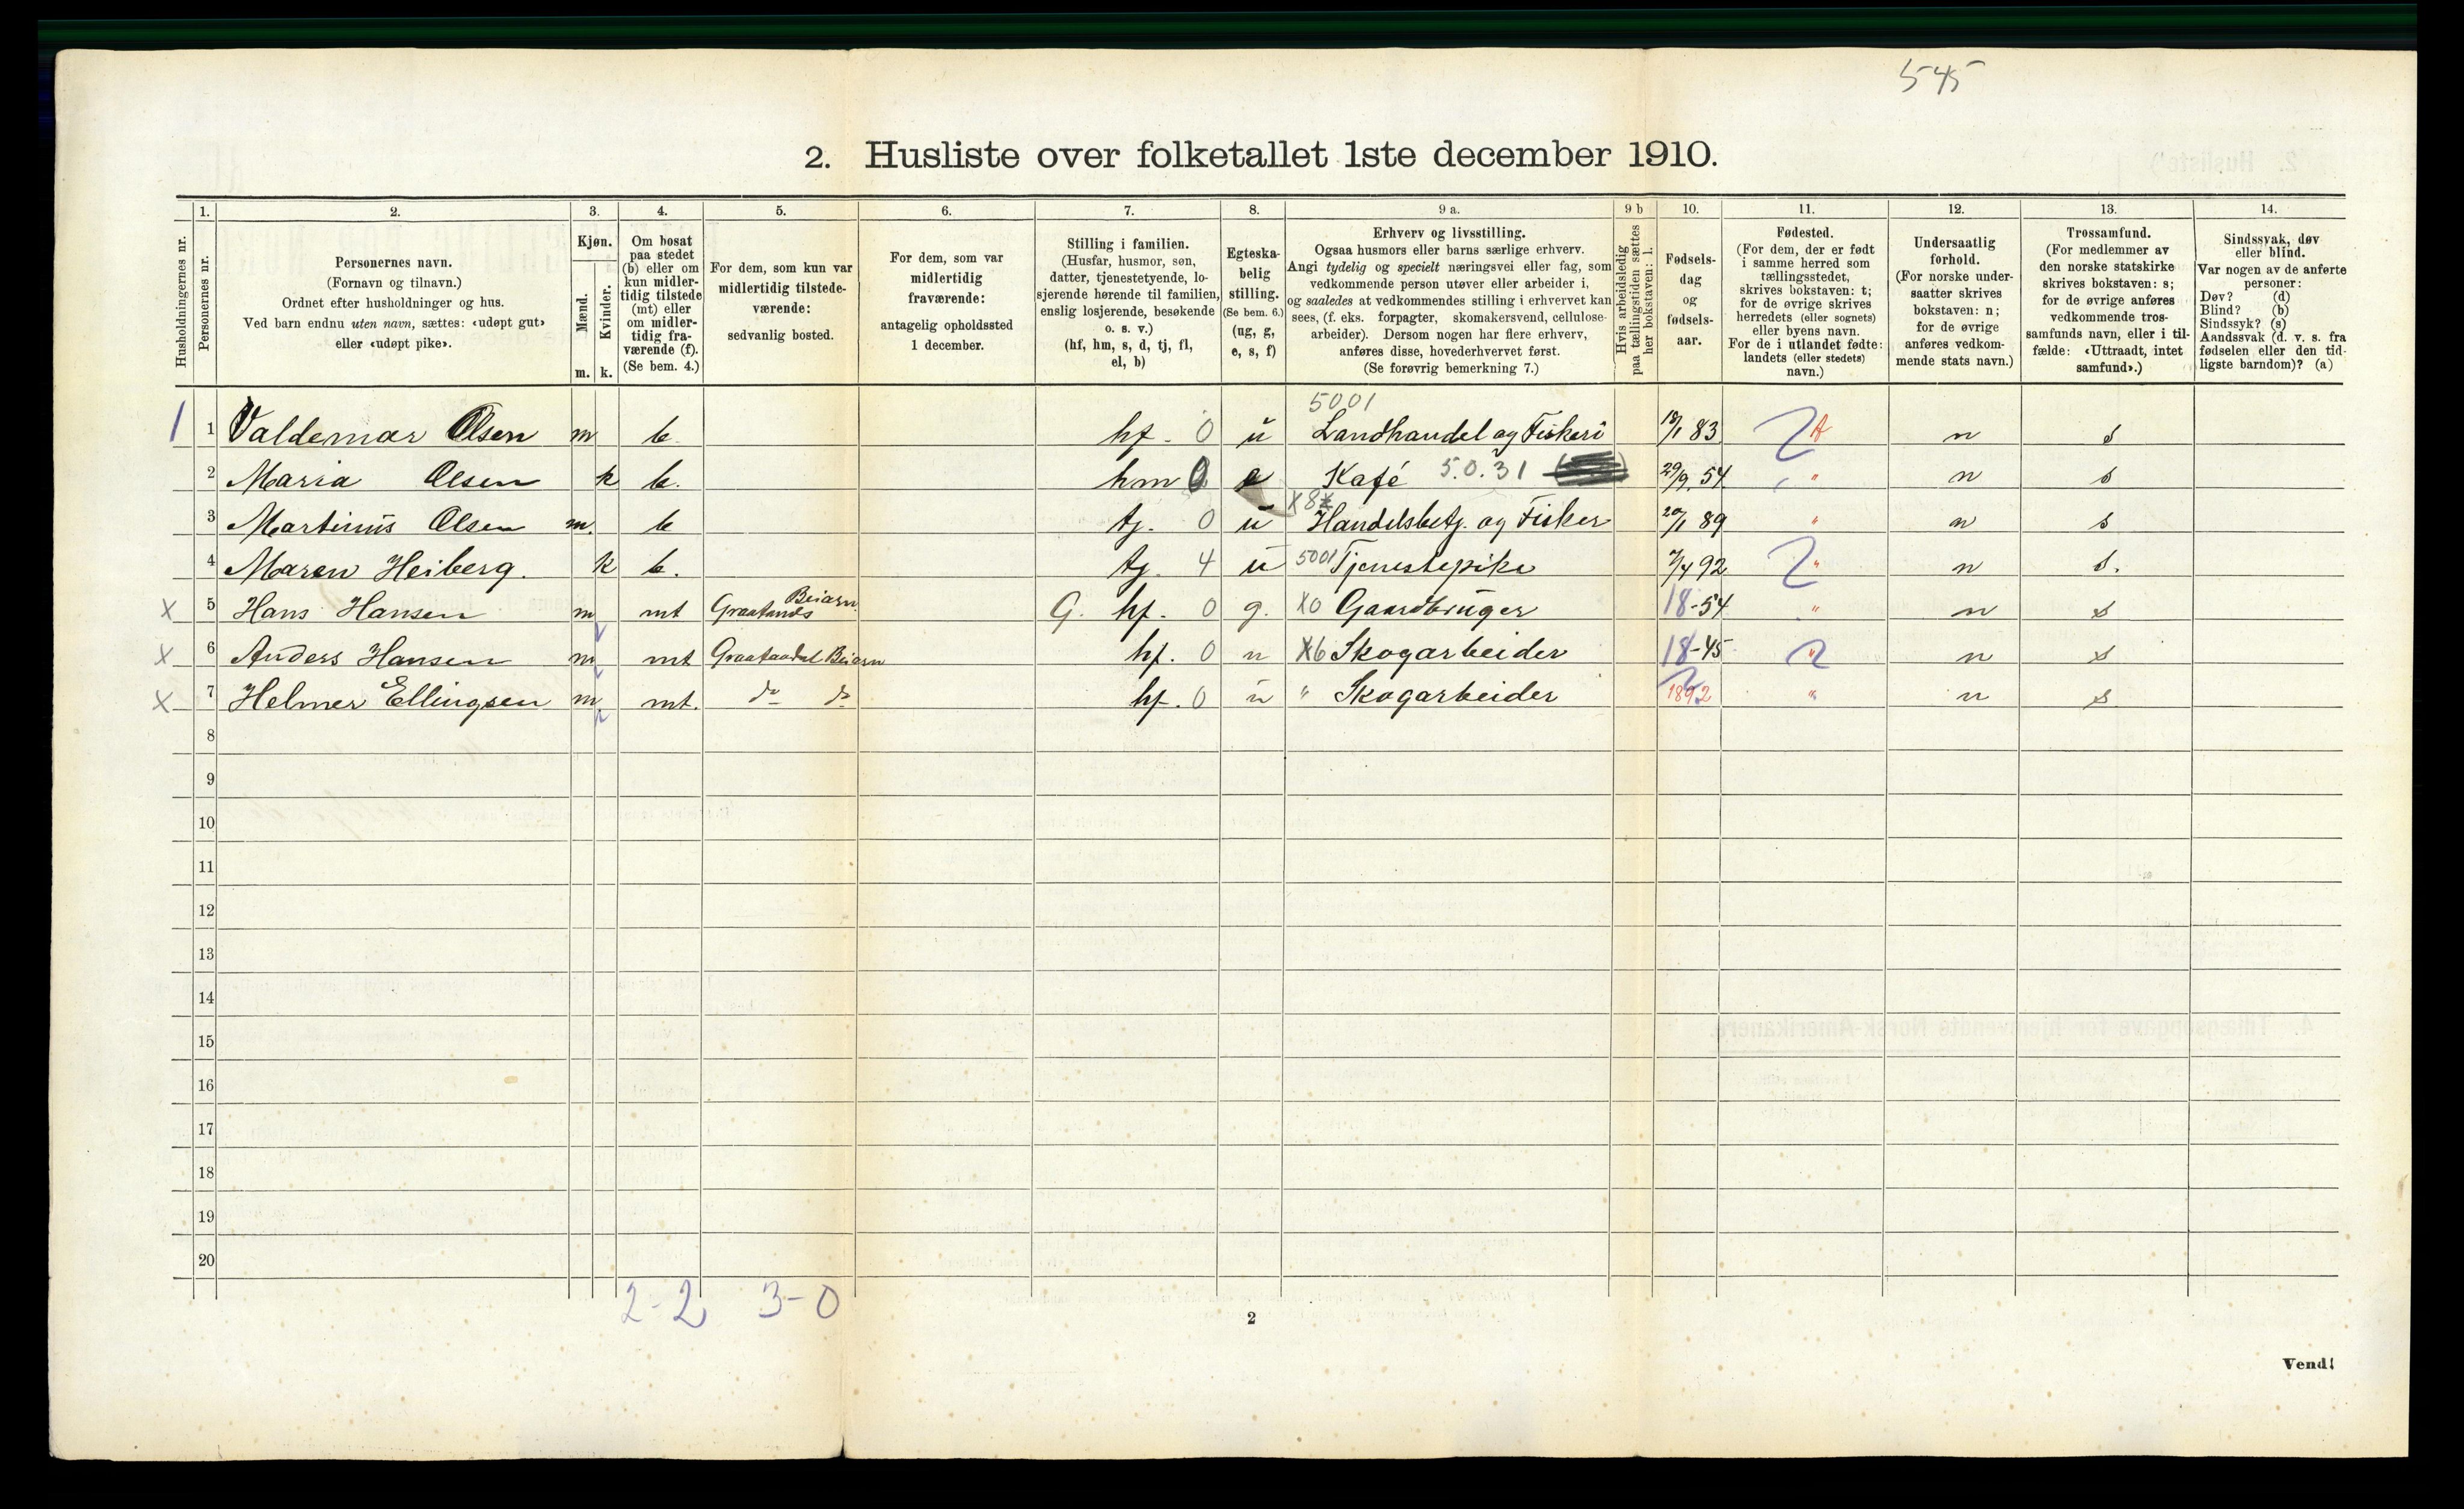 545
2. Husliste over folketallet 1ste december 1910.
1. 2. 3. 4. 5. 6. 7. 8. 9 a. 9 b 10. 11. 12. 13. 14.
Husholdningernes nr.
Personernes nr.
Personernes navn.
(Fornavn og tilnavn.)
Ordnet efter husholdninger og hus.
Ved barn endnu uten navn, sættes: «udøpt gut»
eller «udøpt pike».
Kjøn.
Mænd.
Kvinder.
m. k.
Om bosat
paa stedet
(b) eller om
kun midler-
tidig tilstede
(mt) eller
om midler-
tidig fra-
værende (f).
(Se bem. 4.)
For dem, som kun var
midlertidig tilstede-
værende:
sedvanlig bosted.
For dem, som var
midlertidig
fraværende:
antagelig opholdssted
1 december.
Stilling i familien.
(Husfar, husmor, søn,
datter, tjenestetyende, lo-
sjerende hørende til familien,
enslig losjerende, besøkende
o. s. v.)
(hf, hm, s, d, tj, fl,
el, b)
Egteska-
belig
stilling.
(Se bem. 6.)
(ug, g,
e, s, f)
Erhverv og livsstilling.
Ogsaa husmors eller barns særlige erhverv.
Angi tydelig og specielt næringsvei eller fag, som
vedkommende person utøver eller arbeider i,
og saaledes at vedkommendes stilling i erhvervet kan
sees, (f. eks. forpagter, skomakersvend, cellulose-
arbeider). Dersom nogen har flere erhverv,
anføres disse, hovederhvervet først.
(Se forøvrig bemerkning 7.)
Hvis arbeidsledig
paa tællingstiden sættes
her bokstaven: l.
Fødsels-
dag
og
fødsels-
aar.
Fødested.
(For dem, der er født
i samme herred som
tællingsstedet,
skrives bokstaven: t;
for de øvrige skrives
herredets (eller sognets)
eller byens navn.
For de i utlandet fødte:
landets (eller stedets)
navn.)
Undersaatlig
forhold.
(For norske under-
saatter skrives
bokstaven: n;
for de øvrige
anføres vedkom-
mende stats navn.)
Trossamfund.
(For medlemmer av
den norske statskirke
skrives bokstaven: s;
for de øvrige anføres
vedkommende tros-
samfunds navn, eller i til-
fælde: «Uttraadt, intet
samfund».)
Sindssvak, døv
eller blind.
Var nogen av de anførte
personer:
Døv? (d)
Blind? (b)
Sindssyk? (s)
Aandssvak (d. v. s. fra
fødselen eller den tid-
ligste barndom)? (a)
5001
1 1 Valdemar Olsen m b hf. 0 u Landhandel og Fiskeri 18/1 83 t n s
2 Maria Olsen k b. hm 0 e Kafé 5.0.31 29/9. 54 " n s
3 Martinus Olsen m. b tj. 0 u X8 Handelsbetj. og Fisker 20/1 89 " n s
4 Maren Heiberg. k b. tj. 4 u 5001 Tjenestepike 7/4 92 " n s.
X 5 Hans Hansen m mt Graatands Beiarn G. hf. 0 g. X0 Gaardbruger 18-54 " n s
X 6 Anders Hansen m mt Graataadal Beiarn hf. 0 u X6 Skogarbeider 18-45 " n s
X 7 Helmer Ellingsen m. mt. do do hf. 0 u " Skogarbeider 1892 " n s
8
9
10
11
12
13
14
15
16
17
18
19
20
2-2 3-0
2
Vend!